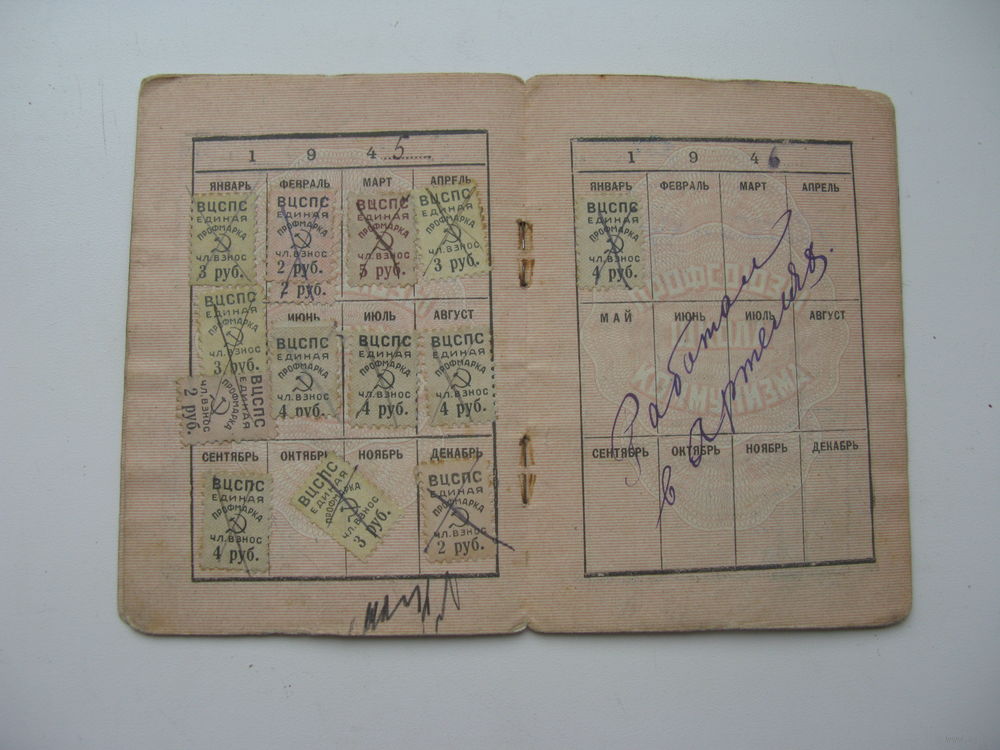 1 9 4 5
ЯНВАРЬ ФЕВРАЛЬ МАРТ АПРЕЛЬ
ВЦСПС
ЕДИНАЯ
ПРОФМАРКА
ЧЛ. ВЗНОС
3 руб.
ВЦСПС
ЕДИНАЯ
ПРОФМАРКА
ЧЛ. ВЗНОС
2 руб.
2 руб.
ВЦСПС
ЕДИНАЯ
ПРОФМАРКА
ЧЛ. ВЗНОС
5 руб.
ВЦСПС
ЕДИНАЯ
ПРОФМАРКА
ЧЛ. ВЗНОС
3 руб.
ИЮНЬ ИЮЛЬ АВГУСТ
ВЦСПС
ЕДИНАЯ
ПРОФМАРКА
ЧЛ. ВЗНОС
3 руб.
ВЦСПС
ЕДИНАЯ
ПРОФМАРКА
ЧЛ. ВЗНОС
2 руб.
ВЦСПС
ЕДИНАЯ
ПРОФМАРКА
ЧЛ. ВЗНОС
4 руб.
ВЦСПС
ЕДИНАЯ
ПРОФМАРКА
ЧЛ. ВЗНОС
4 руб.
ВЦСПС
ЕДИНАЯ
ПРОФМАРКА
ЧЛ. ВЗНОС
4 руб.
СЕНТЯБРЬ ОКТЯБРЬ НОЯБРЬ ДЕКАБРЬ
ВЦСПС
ЕДИНАЯ
ПРОФМАРКА
ЧЛ. ВЗНОС
4 руб.
ВЦСПС
ЕДИНАЯ
ПРОФМАРКА
ЧЛ. ВЗНОС
3 руб.
ВЦСПС
ЕДИНАЯ
ПРОФМАРКА
ЧЛ. ВЗНОС
2 руб.
1 9 4 6
ЯНВАРЬ ФЕВРАЛЬ МАРТ АПРЕЛЬ
ВЦСПС
ЕДИНАЯ
ПРОФМАРКА
ЧЛ. ВЗНОС
4 руб.
МАЙ ИЮНЬ ИЮЛЬ АВГУСТ
СЕНТЯБРЬ ОКТЯБРЬ НОЯБРЬ ДЕКАБРЬ
Работал
в артелях.